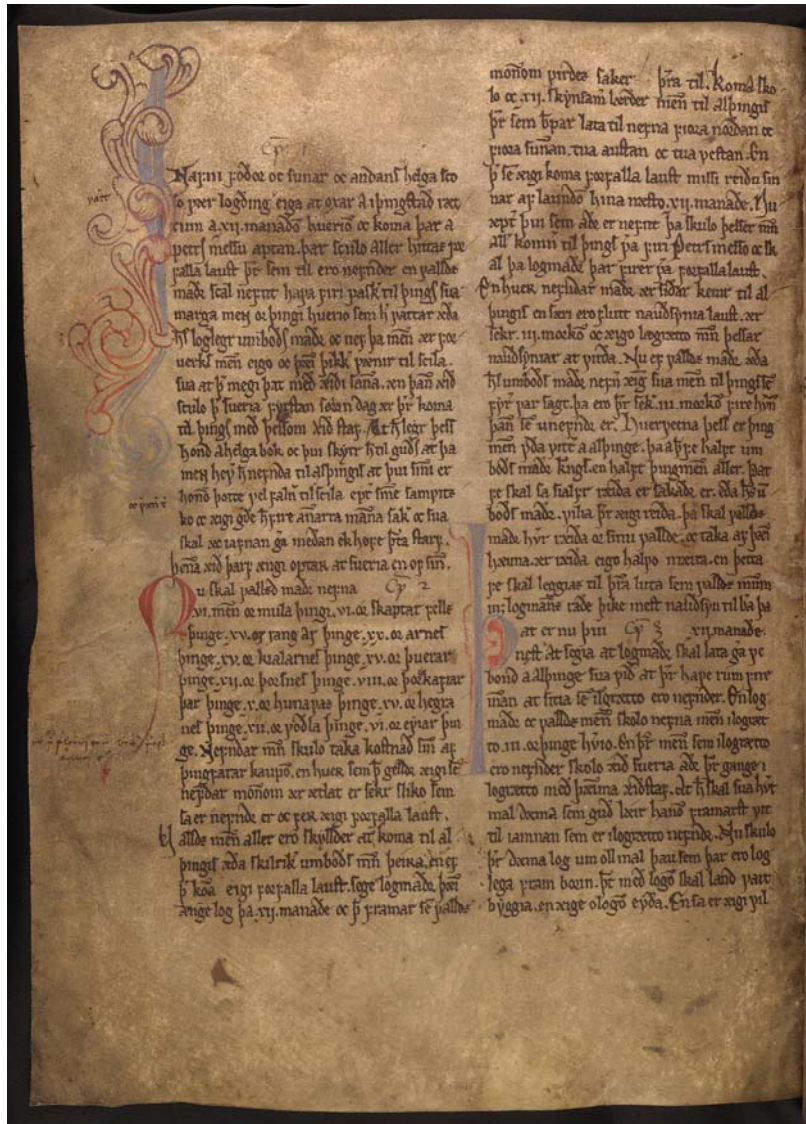 Nafni fodor oc sunar oc andans helga sco
lo ver logþing eiga at oxar a i þingstad ret
tum a .xij. manadom hueriom oc koma þar a
petrs messu aptan. þar sculo aller hittaz for
falla laust þr sem til ero nefnder en vallds
madr scal nefnt hafa firi pask til þings sua
marga menn or þingi huerio sem h vattar æda
hs loglegr umbods madr oc nef þa men er for
verks men eigo oc þeir þikk vænir til scila.
sua at þ megi þat med æidi sanna. æn þann æid
sculo þ sueria fyrstan sorin dag er þr koma
til þings med þessom æid staf. At h legr þess
hond a helga bok oc þui skytr h til guds at þa
menn hef h nefnda til alþingis at þui sinni er
honom þotte vel falnir til scila eptir sinne samuitz
ko oc æigi gerde h fire annarra manna sak oc sua
skal ec iafnan gera medan ek hofe þetta starf.
þenna æid þarf ængi optar at sueria en om sin.
Nu skal vallds madr nefna Cap 2
.vi. men or mula þingi .vi. or skaptar fells
þinge .xv. or rang ar þinge .xx. or arnes
þinge .xv. or kialarnes þinge .xv. or þuerar
þinge .xij. or þorsnes þinge .viij. or þorskafiar
þar þinge .v. or hunavaz þinge .xv. or hegra
nes þinge .xij. or vodla þinge .vi. or eyiar þin
ge. Nefndar menn skulo taka kostnad sinn af
þingfarar kaupom. en huer sem þ gelldr æigi sem
nefdar monnom er ætlat er sekr sliko sem
sa er nefndr er oc ferr æigi forfalla laust.
Vallds men aller ero skyllder at koma til al
þingis æda skilrik umbods menn þeira. en ef
þ koma eigi forfalla laust. sege logmadr þeim
ænge log þa .xij. manade oc þ framar sem vallds
monnom virdez saker þeira til. Koma sko
lo oc .xij. skynsamir lærder menn til alþingis
þr sem bpar lata til nefna fiora nordan oc
fiora sunnan. tua austan oc tua vestan. En
þ sem æigi koma forfalla laust missi reidu sin
nar af laundom hina næsto .xij. manade. Nu
eptir þui sem adr er nefnt þa skulo þesser menn
aller komnir til þings þa firi Petrs messo oc sk
al þa logmadr þar firer þa forfalla laust.
En huer nefndar madr er sidar kemr til al
þingis en særi ero flutt naudsynia laust. er
sekr .iij. morkom oc æigo lægretto menn þessar
naudsyniar at virda. Nu ef vallds madr æda
hs umbods madr nefnir æigi sua men til þings sem
fyrr var sagt. þa ero þr sekir .iij. morkom fire huern
þann sem unefndr er. Hueruetna þess er þing
men verda vitter a alþinge. þa a þ fe halft um
bods madr kongs. en halft þingmen aller. þat
fe skal sa sialfr reida er sakadr er. eda hs um
bods madr. vilia þr æigi reida. þa skal vallds
madr huer reida or sinni valldz. oc taka af þeim
hæima. er reida eigo halfo mæira. en þetta
fe skal leggiaz til þeira luta sem vallds mannum
oc logmanne rade þike mest naudsyn til bæra þa
Þat er nu þui Cap 3 .xij. manade.
nest at segia at logmadr skal lata gera ve
bond a alþinge sua vid at þr hafe rum fire
innan at sitia sem i logretto ero nefnder. En log
madr oc vallds menn skolo nefna men i lograt
to .iij. or þinge huerio. En þr menn sem i logretto
ero nefnder skolo æid sueria adr þr gange i
logretto med þæima æidstaf. At h skal sua huert
mal dæma sem gud lær hanom framarst vit
til iamnan sem er i logretto nefndr. Nu skulo
þr dæma log um oll mal þau sem þar ero log
lega fram borin. þt med logom skal land vart
byggia. en æige ologom eyda. En sa er æigi vil